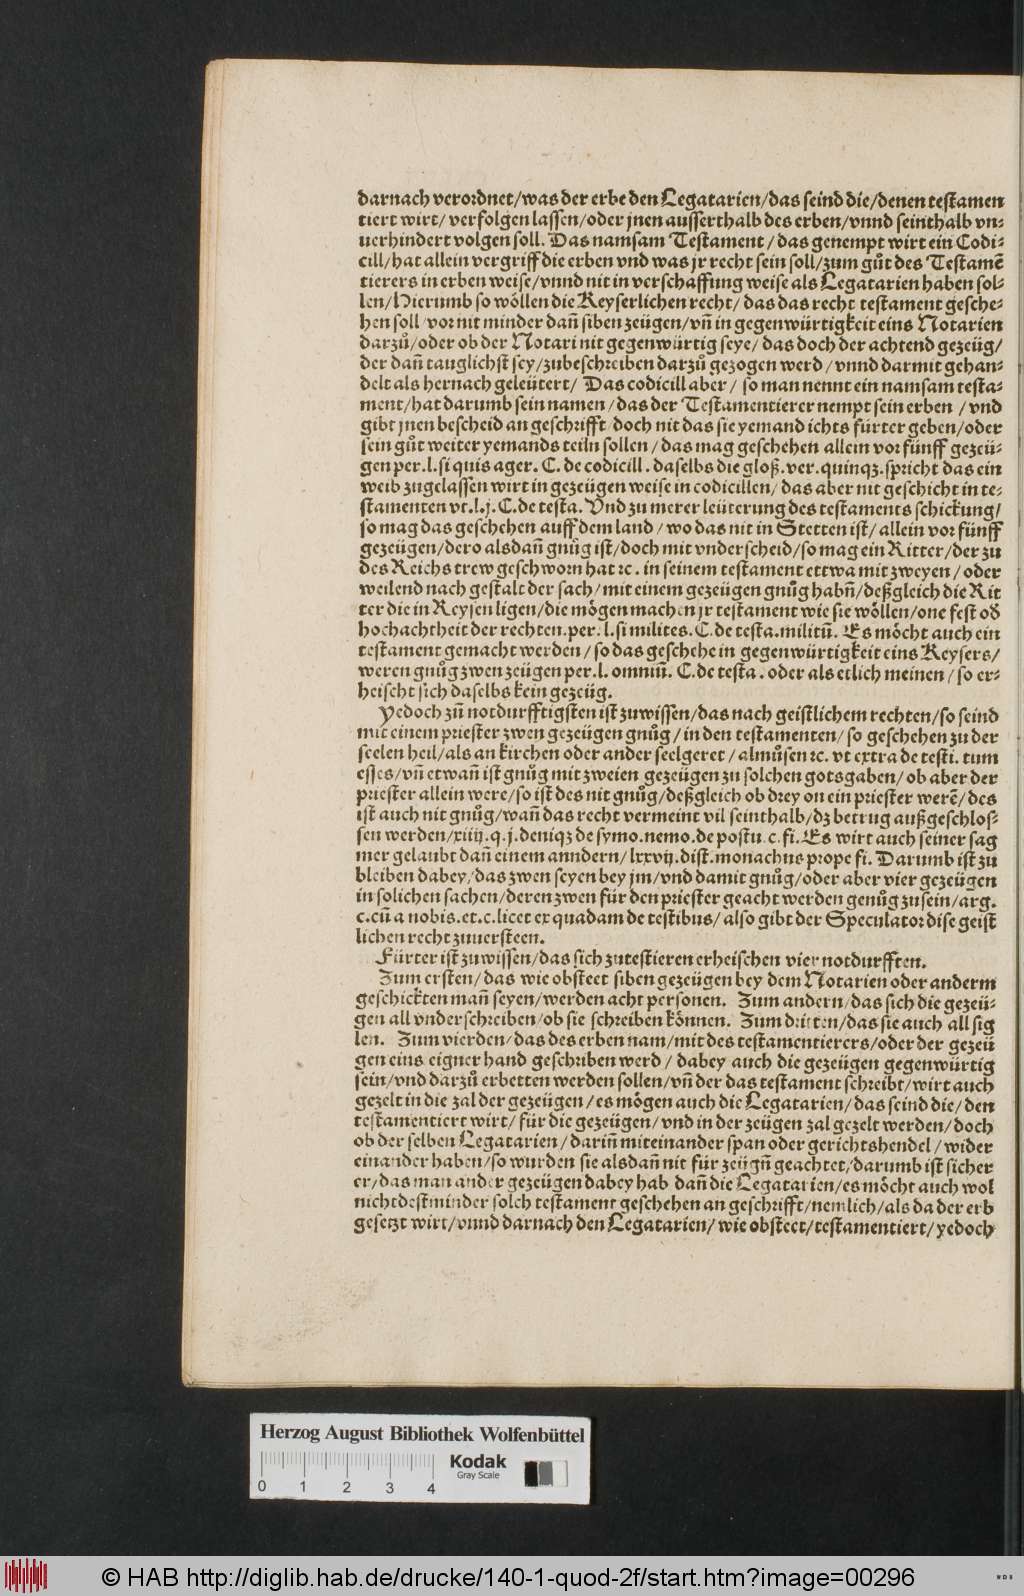 darnach verordnet/was der erbe den Legatarien/das seind die/denen testamen
tiert wirt/ verfolgen lassen/oder jnen ausserthalb des erben/vnnd seinthalb vn⸗
uerhindert volgen soll. Das namsam Testament/ das genempt wirt ein Codi⸗
cill/hat allein vergriff die erben vnd was jr recht sein soll/zum gůt des Testamē
tierers in erben weise/vnnd nit in verschaffung weise als Legatarien haben sol⸗
len/Hierumb so wöllen die Keyserlichen recht/ das das recht testament gesche⸗
hen soll/vor nit minder dañ siben zeügen/vñ in gegenwürtigkeit eins Notarien
darzů/oder ob der Notari nit gegenwürtig seye/ das doch der achtend gezeüg/
der dañ tauglichst sey/zubeschreiben darzů gezogen werd/vnnd darmit gehan⸗
delt als hernach geleütert/ Das codicill aber/ so man nennt ein namsam testa⸗
ment/hat darumb sein namen/das der Testamentierer nempt sein erben/vnd
gibt jnen bescheid an geschrifft/doch nit das sie yemand ichts fürter geben/oder
sein gůt weiter yemands teiln sollen/das mag geschehen allein vor fünff gezeü⸗
gen per.l.si quis ager. C. de codicill. daselbs die gloß.ver.quinqꝫ.spricht das ein
weib zugelassen wirt in gezeügen weise in codicillen/das aber nit geschicht in te⸗
stamenten vt.l.j.C.de testa. Vnd zu merer leüterung des testaments schickung/
so mag das geschehen auff dem land/wo das nit in Stetten ist/allein vor fünff
gezeügen/dero alsdañ gnůg ist/doch mit vnderscheid/so mag ein Ritter/der zu
des Reichs trew geschworn hat ꝛc. in seinem testament ettwa mit zweyen/oder
weilend nach gestalt der sach/mit einem gezeügen gnůg habñ/deßgleich die Rit
ter die in Reysen ligen/die mögen machen jr testament wie sie wöllen/one fest oð
hochachtheit der rechten.per.l.si milites.C.de testa.militū. Es möcht auch ein
testament gemacht werden/so das geschehe in gegenwürtigkeit eins Keysers/
weren gnůg zwen zeügen per.l. omniū. C.de testa. oder als etlich meinen/so er⸗
heischt sich daselbs kein gezeüg.
Yedoch zū notdurfftigsten ist zuwissen/das nach geistlichem rechten/so seind
mit einem priester zwen gezeügen gnůg/in den testamenten/so geschehen zu der
seelen heil/als an kirchen oder ander seelgeret/almůsen ꝛc. vt extra de testi. tum
esses/vñ etwañ ist gnůg mit zweien gezeügen zu solchen gotsgaben/ob aber der
priester allein were/so ist des nit gnůg/deßgleich ob drey on ein priester werē/des
ist auch nit gnůg/wañ das recht vermeint vil seinthalb/dz betrug außgeschlos⸗
sen werden/xiiij.q.j.deniqꝫ de symo.nemo.de postu.c.fi.Es wirt auch seiner sag
mer gelaubt dañ einem anndern/lxxvij.dist.monachus prope fi. Darumb ist zu
bleiben dabey/das zwen seyen bey jm/vnd damit gnůg/oder aber vier gezeügen
in solichen sachen/deren zwen für den priester geacht werden genůg zusein/arg.
c.cū a nobis.et.c.licet ex quadam de testibus/also gibt der Speculator dise geist
lichen recht zuuersteen.
Fürter ist zuwissen/das sich zutestieren erheischen vier notdurfften.
Zum ersten/das wie obsteet siben gezeügen bey dem Notarien oder anderm
geschickten mañ seyen/werden acht personen. Zum andern/das sich die gezeü⸗
gen all vnderschreiben/ob sie schreiben können. Zum dritten/das sie auch all sig
len. Zum vierden/das des erben nam/mit des testamentierers/oder der gezeü
gen eins eigner hand geschriben werd/dabey auch die gezeügen gegenwürtig
sein/vnd darzů erbetten werden sollen/vñ der das testament schreibt/wirt auch
gezelt in die zal der gezeügen/es mögen auch die Legatarien/das seind die/den
testamentiert wirt/für die gezeügen/vnd in der zeügen zal gezelt werden/doch
ob der selben Legatarien/dariñ miteinander span oder gerichtshendel/wider
einander haben/so wurden sie alsdañ nit für zeügñ geachtet/darumb ist sicher
er/das man ander gezeügen dabey hab dañ die Legatarien/es möcht auch wol
nichtdestminder solch testament geschehen an geschrifft/nemlich/als da der erb
gesetzt wirt/vnnd darnach den Legatarien/wie obsteet/testamentiert/yedoch
Herzog August Bibliothek Wolfenbüttel
Kodak
Gray Scale
0 1 2 3 4
© HAB http://diglib.hab.de/drucke/140-1-quod-2f/start.htm?image=00296